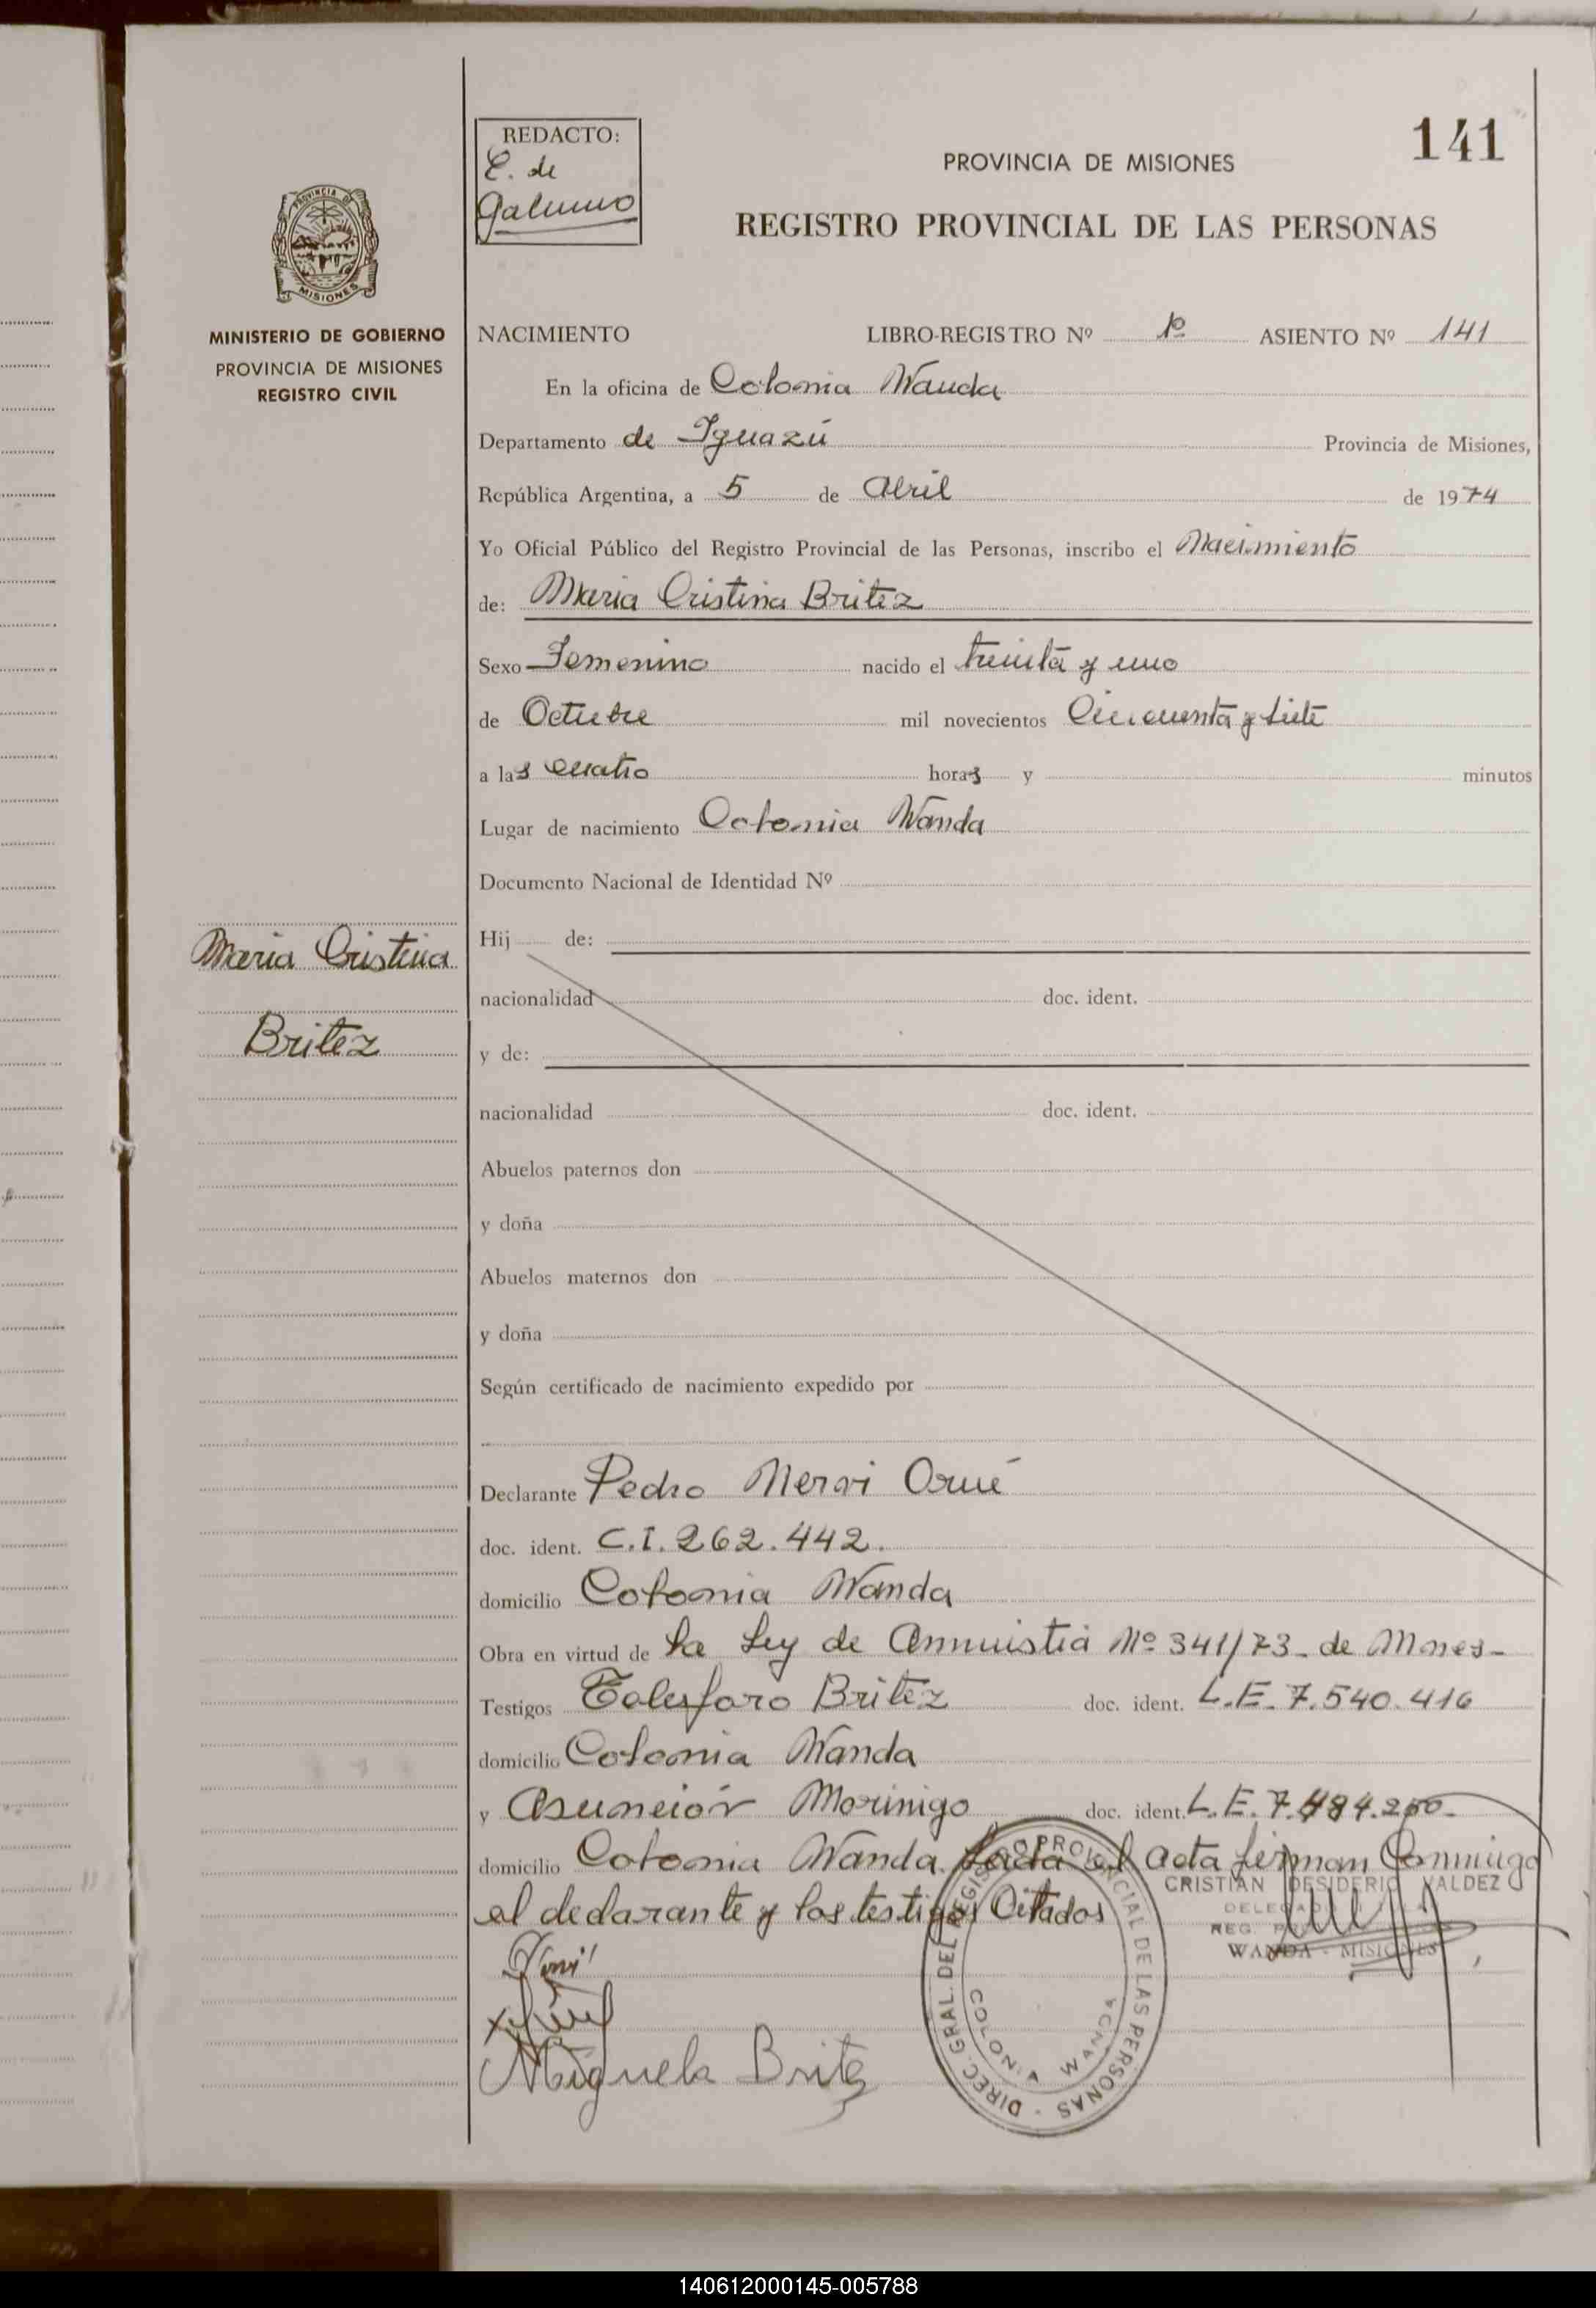 141
REDACTO:
E. de
Galeano
PROVINCIA DE MISIONES
REGISTRO PROVINCIAL DE LAS PERSONAS
PROVINCIA DE
MISIONES
MINISTERIO DE GOBIERNO
PROVINCIA DE MISIONES
REGISTRO CIVIL
NACIMIENTO LIBRO-REGISTRO Nº 1º ASIENTO Nº 141
En la oficina de Colonia Wanda
Departamento de Iguazú Provincia de Misiones,
República Argentina, a 5 de Abril de 1974
Yo Oficial Público del Registro Provincial de las Personas, inscribo el Nacimiento
de: Maria Cristina Britez
Sexo Femenino nacido el treinta y uno
de Octubre mil novecientos Cincuenta y siete
a las cuatro horas y minutos
Lugar de nacimiento Colonia Wanda
Documento Nacional de Identidad Nº
Maria Cristina
Britez
Hij de:
nacionalidad doc. ident.
y de:
nacionalidad doc. ident.
Abuelos paternos don
y doña
Abuelos maternos don
y doña
Según certificado de nacimiento expedido por
Declarante Pedro Nervi Orué
doc. ident. C.I. 262.442.
domicilio Colonia Wanda
Obra en virtud de la Ley de Amnistia Nº 341/73 - de Mnes-
Testigos Telesforo Britez doc. ident. L.E. 7.540.416
domicilio Colonia Wanda
y Asunción Morinigo doc. ident. L.E. 7.484.250.
domicilio Colonia Wanda. Leida el acta firman Conmigo
el declarante y los testigos Citados
CRISTIAN DESIDERIO VALDEZ
WANDA - MISIONES
DIREC. GRAL. DEL REGISTRO PROVINCIAL DE LAS PERSONAS -
COLONIA WANDA
Miguela Britez
140612000145-005788